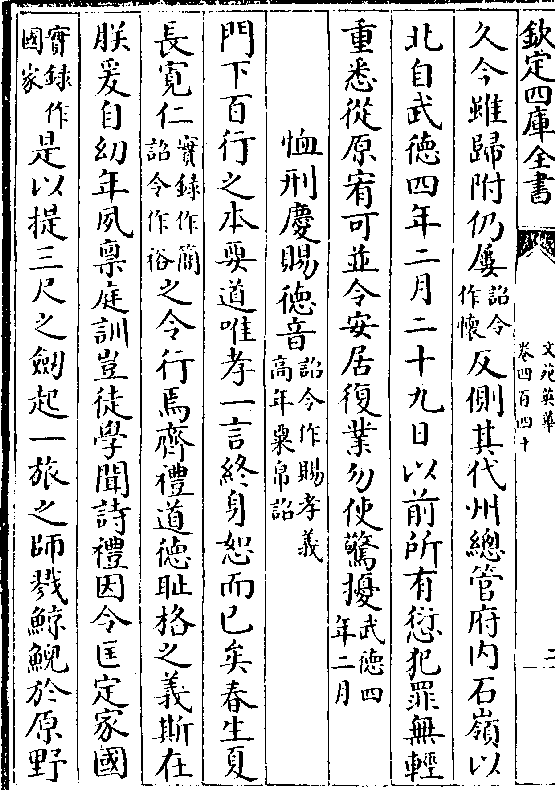 欽定四庫全書
文苑英華
卷四百四十
二
久今雖歸附仍屢詔令作懷反側其代州總管府内石嶺以
北自武德四年二月二十九日以前所有愆犯罪無輕
重悉從原宥可並令安居復業勿使驚擾武德四年二月
恤刑慶賜德音詔令作賜孝義高年粟帛詔
門下百行之本要道唯孝一言終身恕而已矣春生夏
長寛仁實録作簡詔令作裕之令行焉齊禮道德耻格之義斯在
朕爰自幼年夙禀庭訓豈徒學聞詩禮因令匡定家國
實録作國家是以提三尺之劒起一旅之師戮鯨鯢於原野